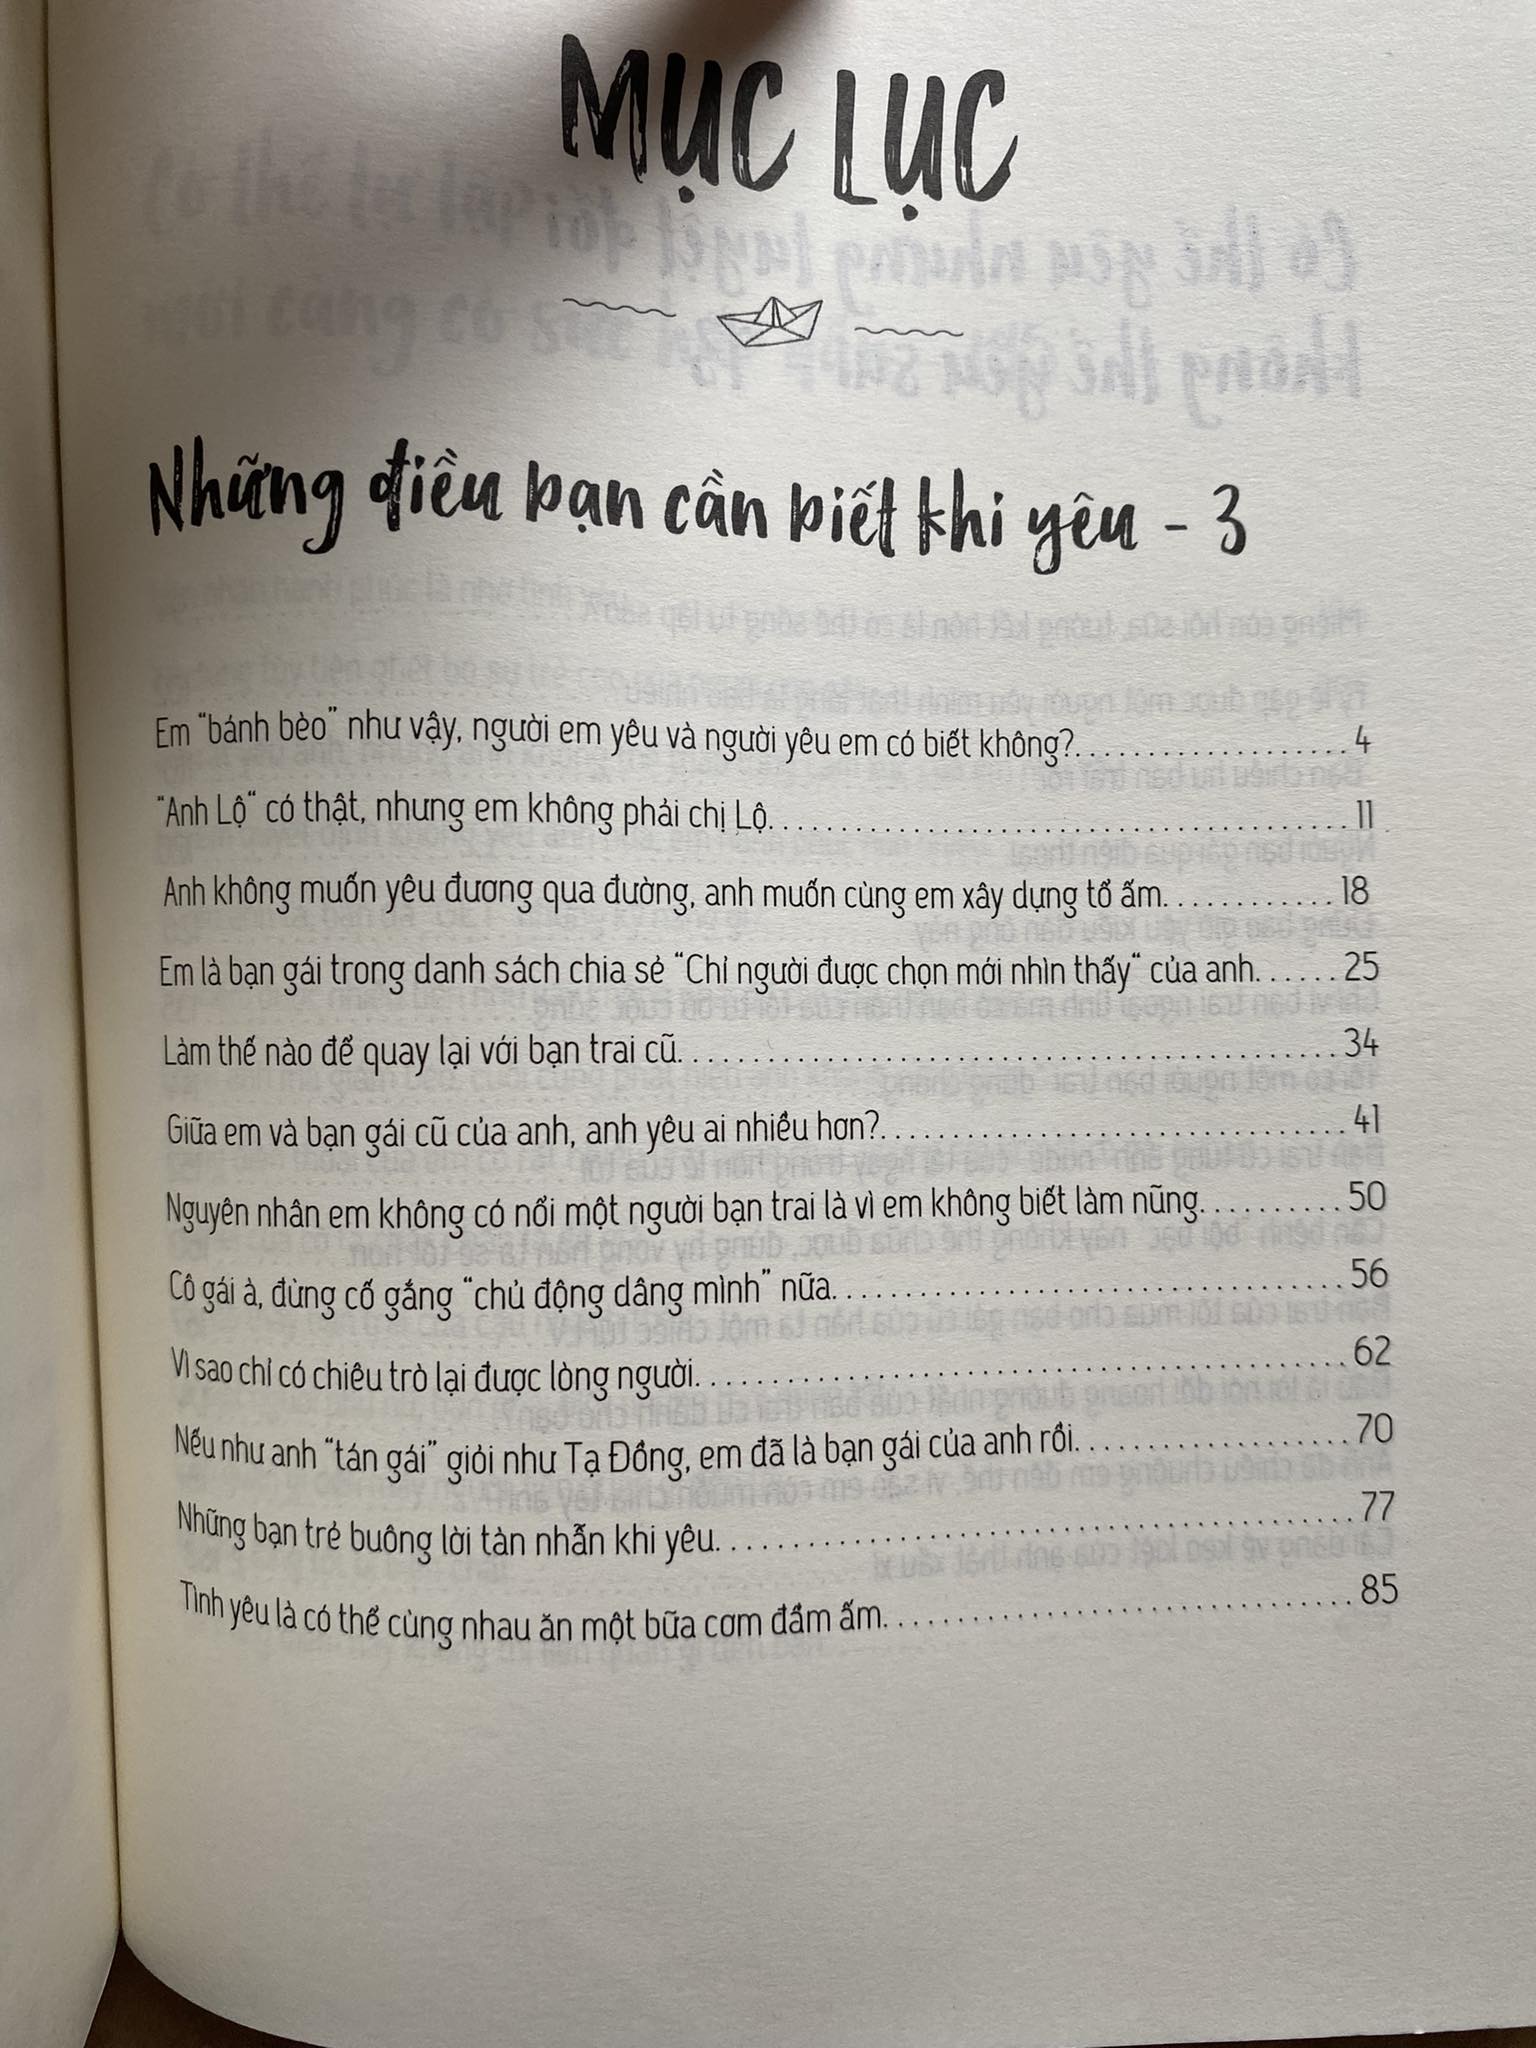 MỤC LỤC
Những điều bạn cần biết khi yêu - 3
Em “bánh bèo” như vậy, người em yêu và người yêu em có biết không?. . . . . . . . . . . . . . . . . . . . 4
“Anh Lộ“ có thật, nhưng em không phải chị Lộ. . . . . . . . . . . . . . . . . . . . . . . . . . . . . . . . . . . . . . . . 11
Anh không muốn yêu đương qua đường, anh muốn cùng em xây dựng tổ ấm. . . . . . . . . . . . . 18
Em là bạn gái trong danh sách chia sẻ “Chỉ người được chọn mới nhìn thấy“ của anh. . . . . . 25
Làm thế nào để quay lại với bạn trai cũ. . . . . . . . . . . . . . . . . . . . . . . . . . . . . . . . . . . . . . . . . . . . . . 34
Giữa em và bạn gái cũ của anh, anh yêu ai nhiều hơn?. . . . . . . . . . . . . . . . . . . . . . . . . . . . . . . . 41
Nguyên nhân em không có nổi một người bạn trai là vì em không biết làm nũng. . . . . . . . . . 50
Cô gái à, đừng cố gắng “chủ động dâng mình” nữa. . . . . . . . . . . . . . . . . . . . . . . . . . . . . . . . . . . . 56
Vì sao chỉ có chiêu trò lại được lòng người. . . . . . . . . . . . . . . . . . . . . . . . . . . . . . . . . . . . . . . . . . . . 62
Nếu như anh “tán gái” giỏi như Tạ Đồng, em đã là bạn gái của anh rồi. . . . . . . . . . . . . . . . . . . 70
Những bạn trẻ buông lời tàn nhẫn khi yêu. . . . . . . . . . . . . . . . . . . . . . . . . . . . . . . . . . . . . . . . . . . 77
Tình yêu là có thể cùng nhau ăn một bữa cơm đầm ấm. . . . . . . . . . . . . . . . . . . . . . . . . . . . . . . . 85